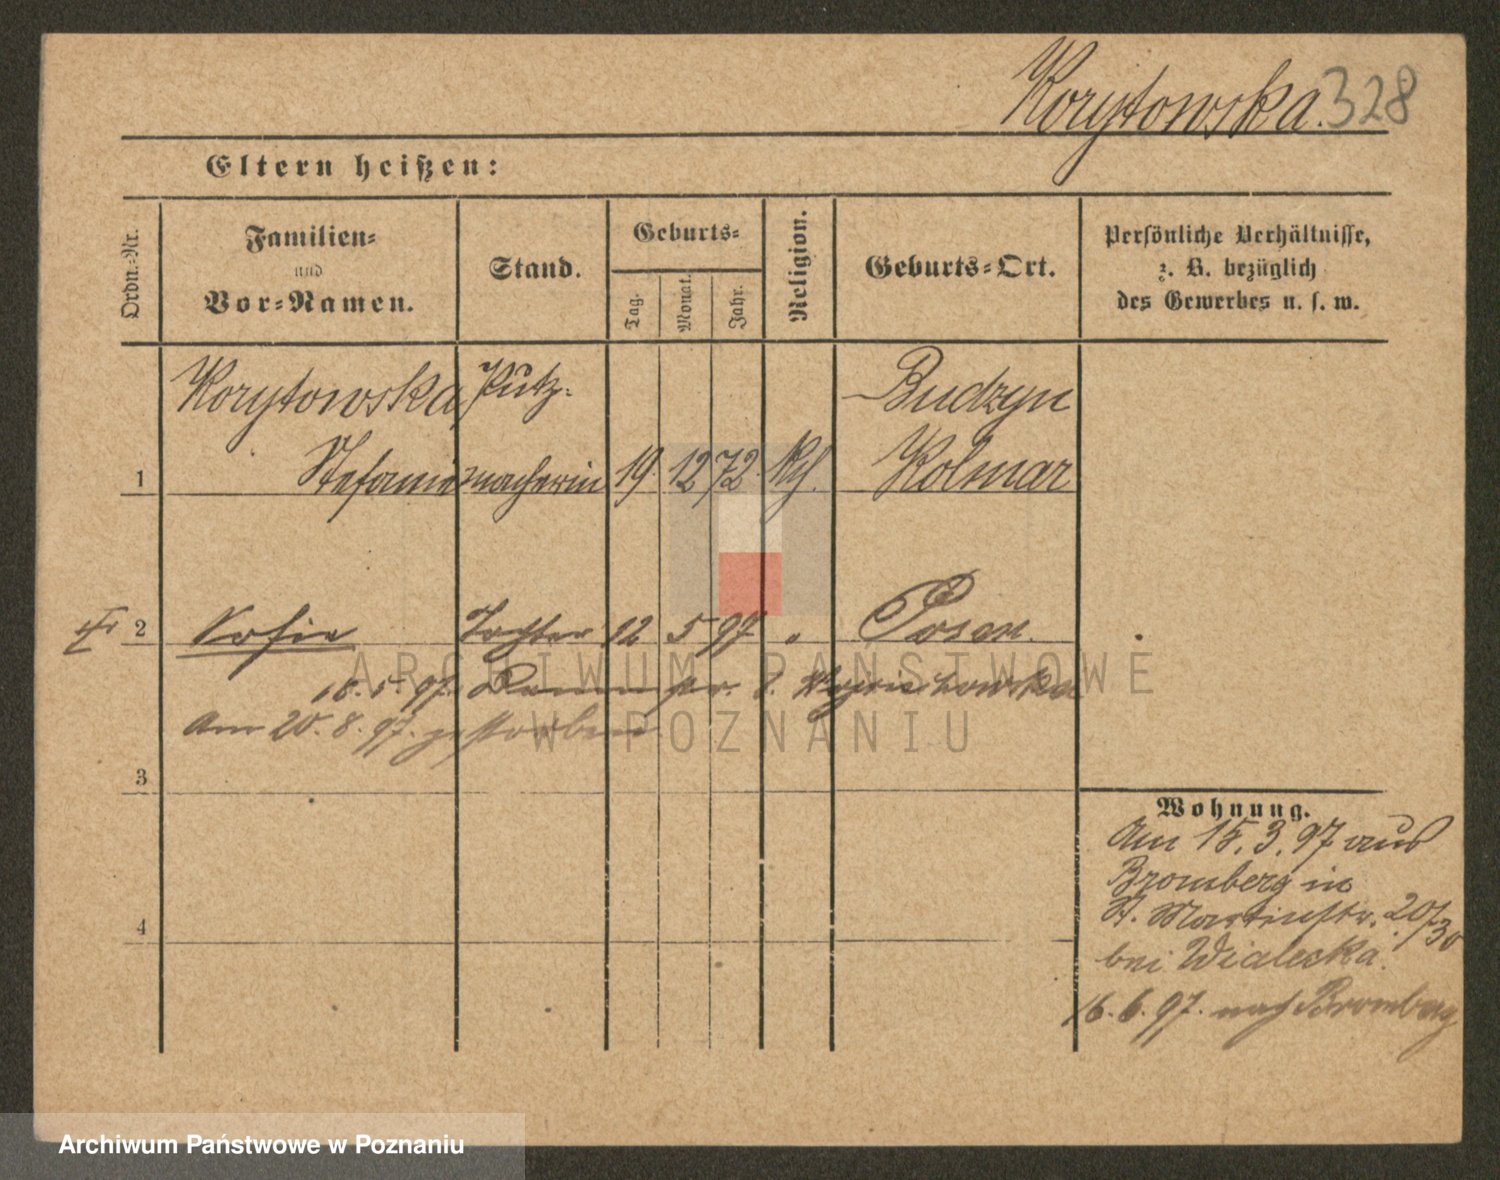 Korytowska. 328
Eltern heißen:
Ordn.-Nr.
Familien-
und
Vor-Namen.
Stand.
Geburts-
Tag.
Monat.
Jahr.
Religion.
Geburts-Ort.
Persönliche Verhältnisse,
z. B. bezüglich
des Gewerbes u. s. w.
Korytowska, Putz- Budzyn
1 Stefanie macherin 19. 12 72. Kth. Kolmar
2 Sofie Tochter 12 5 97 " Posen.
18. 5. 97. Dammstr. 8. Wojciechowska
Am 20. 8. 97. gestorben
3
4
Wohnung.
Am 15. 3. 97 aus
Bromberg in
St. Martinstr. 20/30
bei Wialecka.
16. 6. 97. nach Bromberg
ARCHIWUM PAŃSTWOWE
W POZNANIU
Archiwum Państwowe w Poznaniu